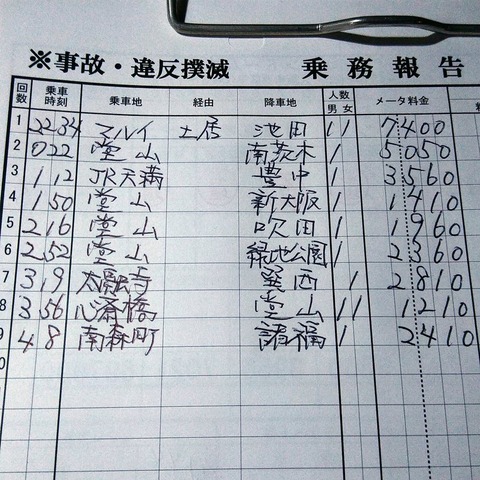 ※事故・違反撲滅 乗務報告
回数 乗車時刻 乗車地 経由 降車地 人数 男 女 メータ料金
1 22 34 マルイ 土居 池田 1 1 7400
2 0 22 堂山 南茨木 1 5050
3 1 12 JR天満 豊中 1 3560
4 1 50 堂山 新大阪 1 1410
5 2 16 堂山 吹田 1 1960
6 2 52 堂山 緑地公園 1 2360
7 3 19 太融寺 1 2810
8 3 56 心斎橋 堂山 1 1 1210
9 4 8 南森町 諸福 1 2410